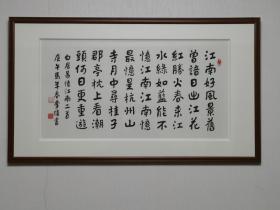 江南好風景舊
曾諳日出江花
紅勝火春來江
水綠如藍能不
憶江南江南憶
最憶是杭州山
寺月中尋桂子
郡亭枕上看潮
頭何日更重遊
白居易憶江南二首
馬年春
書